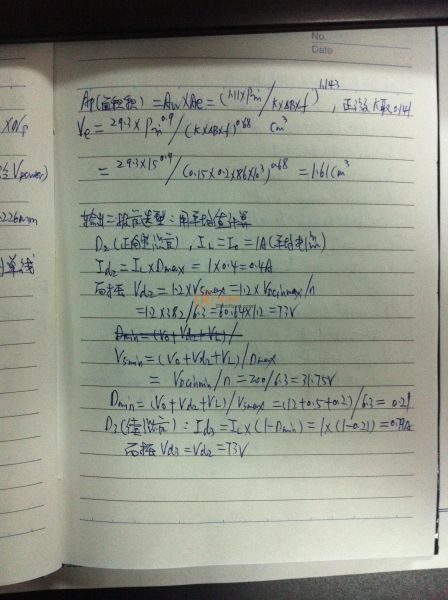 No.
Date
AP(面积积) = Aw×Ae = (1.11×Pin/K×ΔB×f)^1.143, 正激K取0.141
Ve = 29.3×Pin^0.9/(K×ΔB×f)^0.68 cm³
= 29.3×15^0.9/(0.15×0.2×86×10³)^0.68 = 1.61cm³
输出二极管选型:用平均值计算
D2(正向整流管), IL=Io=1A(平均电流)
Id2=IL×Dmax=1×0.4=0.4A
耐压 Vd2=1.2×Vsmax=1.2×Vdcinmax/n
=1.2×382/6.3=60.64×1.2=73V
Dmin=(Vo+Vd2+VL)/
Vsmin=(Vo+Vd2+VL)/Dmax
= Vdcinmin/n=200/6.3=31.75V
Dmin=(Vo+Vd2+VL)/Vsmax=(12+0.5+0.2)/63=0.21
D3(续流管):Id3=IL×(1-Dmin)=1×(1-0.21)=0.79A
耐压 Vd3=Vd2=73V
×N/p
Vpower)
.226mm
单线